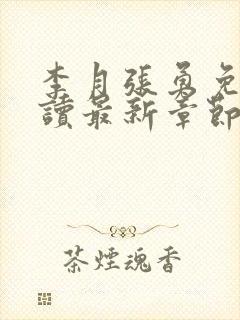 李月張勇免
讀最新章節
茶煙魂香